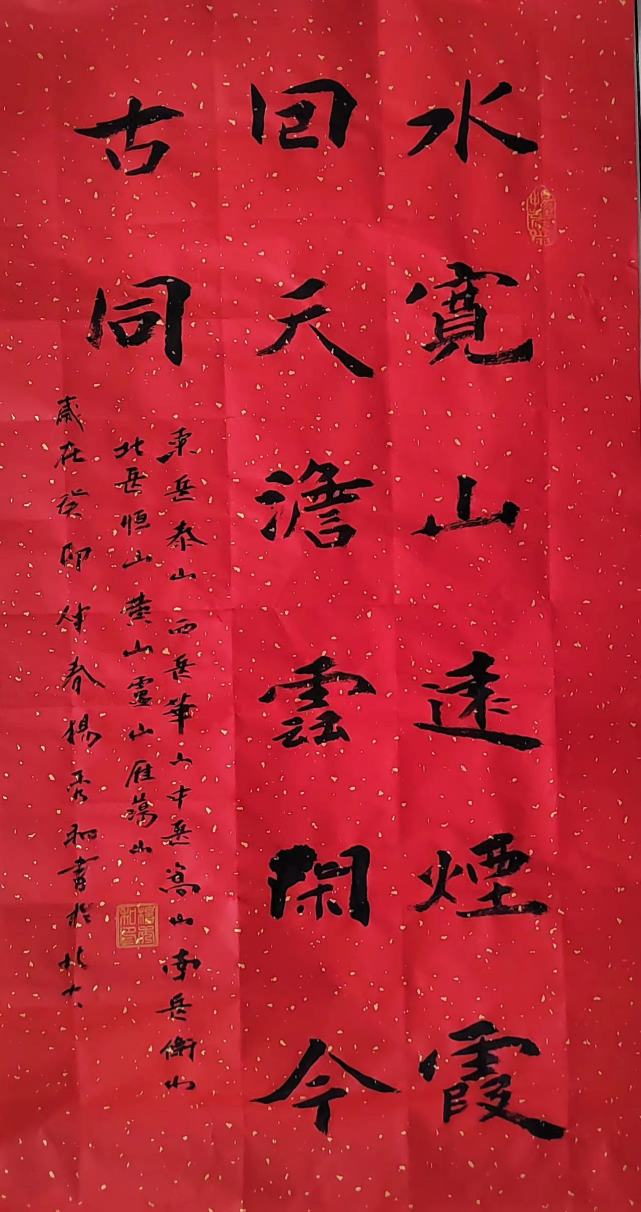 水寬山遠煙霞
回天澹雲閑今
古同
東岳泰山西岳華山中岳嵩山南岳衡山
北岳恒山黄山廬山雁蕩山
歲在癸卯仲春楊秀和書於北大